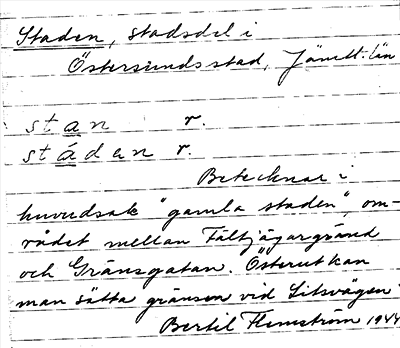 Staden, stadsdel i
Östersunds stad, Jämtl. län
stan r.
städen r.
Betecknar i
huvudsak "gamla staden", om-
rådet mellan Fältjägargränd
och Gränsgatan. Österut kan
man sätta gränsen vid Litsvägen
Bertil Flemström 1944